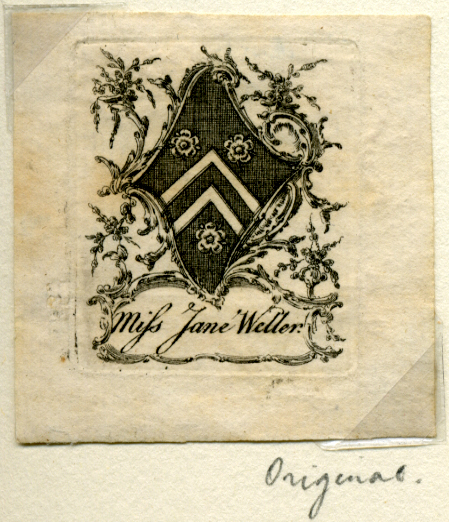 Miſs Jane Weller.
Original.